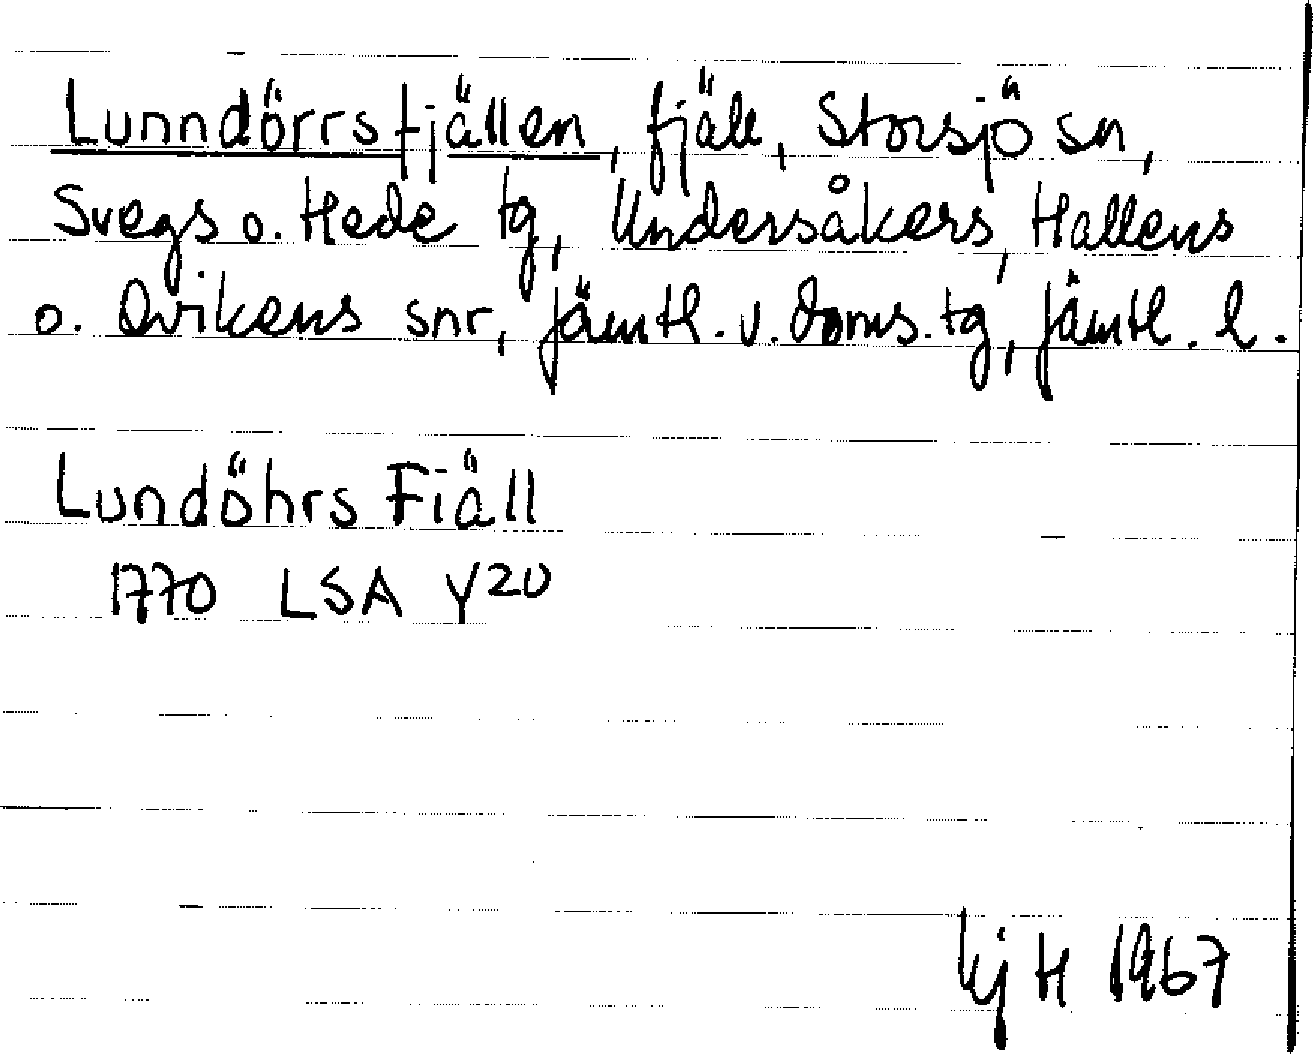 Lunndörrsfjällen, fjäll, Storsjö sn,
Svegs o. Hede tg, Undersåkers, Hallens
o. Ovikens snr, Jämtl. v. doms. tg, Jämtl. l.
Lundöhrs Fiäll
1770 LSA Y20
kj H 1967